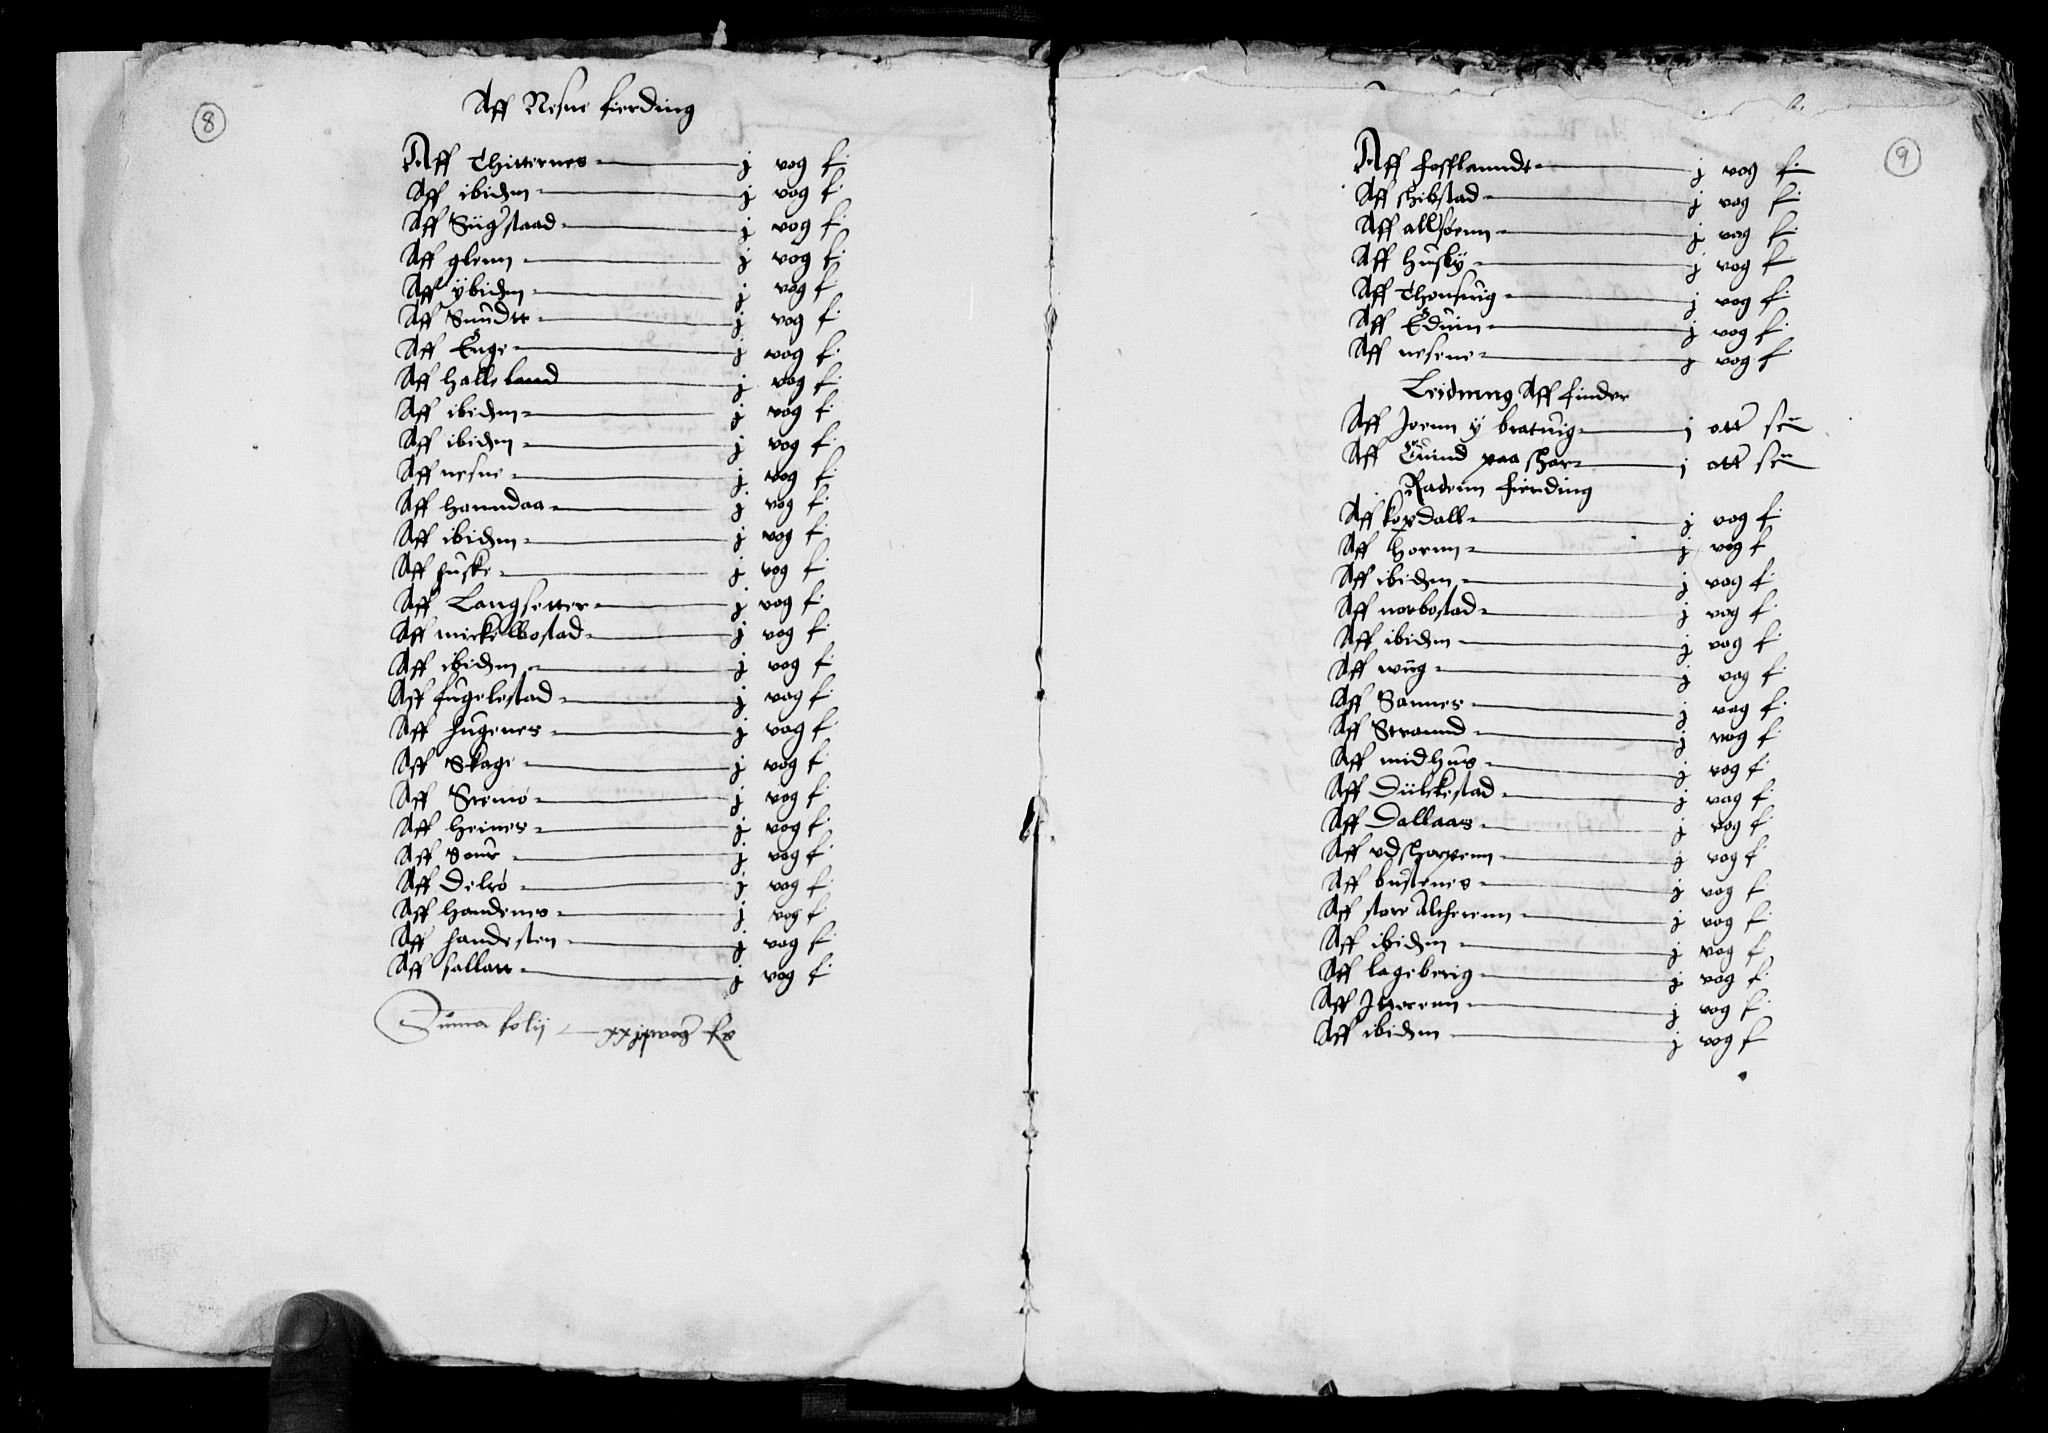 8
Aff Nesne fierding
Aff Thitternes j vog f
Aff ibidem j vog f
Aff Siigstaad j vog f
Aff glenn j vog f
Aff ÿbidem j vog f
Aff Sundtt j vog f
Aff Enge j vog f
Aff halleland j vog f
Aff ibidem j vog f
Aff ibidem j vog f
Aff nesne j vog f
Aff hanndaa j vog f
Aff ibidem j vog f
Aff huske j vog f
Aff Langsetter j vog f
Aff mickelbostad j vog f
Aff ibidem j vog f
Aff fugelestad j vog f
Aff hugenes j vog f
Aff Skage j vog f
Aff Stemo j vog f
Aff heines j vog f
Aff Sour j vog f
Aff Delrö j vog f
Aff handenes j vog f
Aff handesten j vog f
Aff sallatt j vog f
Suma folij xxjxvog fs
9
Aff fofflanndt j vog f
Aff schibstad j vog f
Aff allsörnn j vog f
Aff huskÿ j vog f
Aff Thonsuig j vog f
Aff Eduim j vog f
Aff nesene j vog f
Leidinng Aff finder
Aff Joenn ÿ bratuig j ott sen
Aff Euind paa schar j ott sen
Radenn fierding
Aff kopdall j vog f
Aff hornn j vog f
Aff ibidem j vog f
Aff norbostad j vog f
Aff ibidem j vog f
Aff wug j vog f
Aff Sannes j vog f
Aff Strannd j vog f
Aff midhus j vog f
Aff Diilckestad j vog f
Aff Dallaas j vog f
Aff vdscharpenn j vog f
Aff bustenes j vog f
Aff store Altherenn j vog f
Aff ibidem j vog f
Aff lageberig j vog f
Aff Jtterenn j vog f
Aff ibidem j vog f